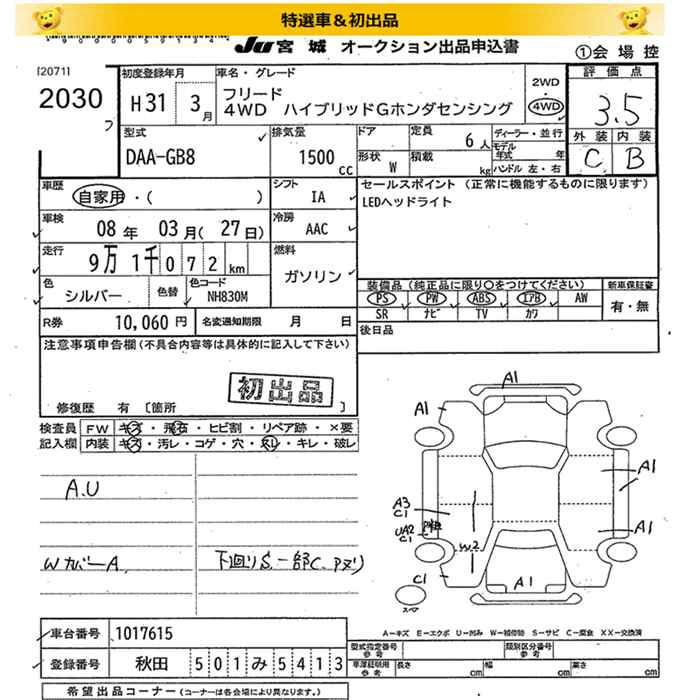 特選車&初出品
JU宮城 オークション出品申込書
①会場控
[2071]
2030
フ
初度登録年月
H31 3月
車名・グレード
フリード
4WD ハイブリッドGホンダセンシング
2WD
・
4WD
評価点
3.5
外装 内装
C B
型式
DAA-GB8
排気量
1500cc
ドア
形状 W
定員 6人
積載 kg
ディーラー・並行
モデル年式 年
ハンドル 左・右
車歴
自家用・( )
シフト
IA
セールスポイント (正常に機能するものに限ります)
LEDヘッドライト
車検
08年 03月(27日)
冷房
AAC
走行
9万1千072km
燃料
ガソリン
色
シルバー
色替
色コード
NH830M
装備品(純正品に限り○をつけてください)
新車保証書
PS PW ABS エアB AW
SR ナビ TV カワ
有・無
R券 10,060円
名変通知期限 月 日
後日品
注意事項申告欄(不具合内容等は具体的に記入して下さい)
初出品
修復歴 有 〔箇所 〕
検査員記入欄
FW キズ・飛石・ヒビ割・リペア跡・×要
内装 キズ・汚レ・コゲ・穴・スレ・キレ・破レ
A.U
Wカバー A
下回りS、一部C、Pヌリ
A1
A1
A1
A3
C1
UA2
C1
W2
A1
C1
A1
スペア
A-キズ E-エクボ U-凹み W-補修跡 S-サビ C-腐食 XX-交換済
車台番号 1017615
登録番号 秋田 501み5413
型式指定番号 参考
類別区分番号 参考
車庫証明用 参考
長さ cm 幅 cm 高さ cm
希望出品コーナー(コーナーは各会場により異なります。)